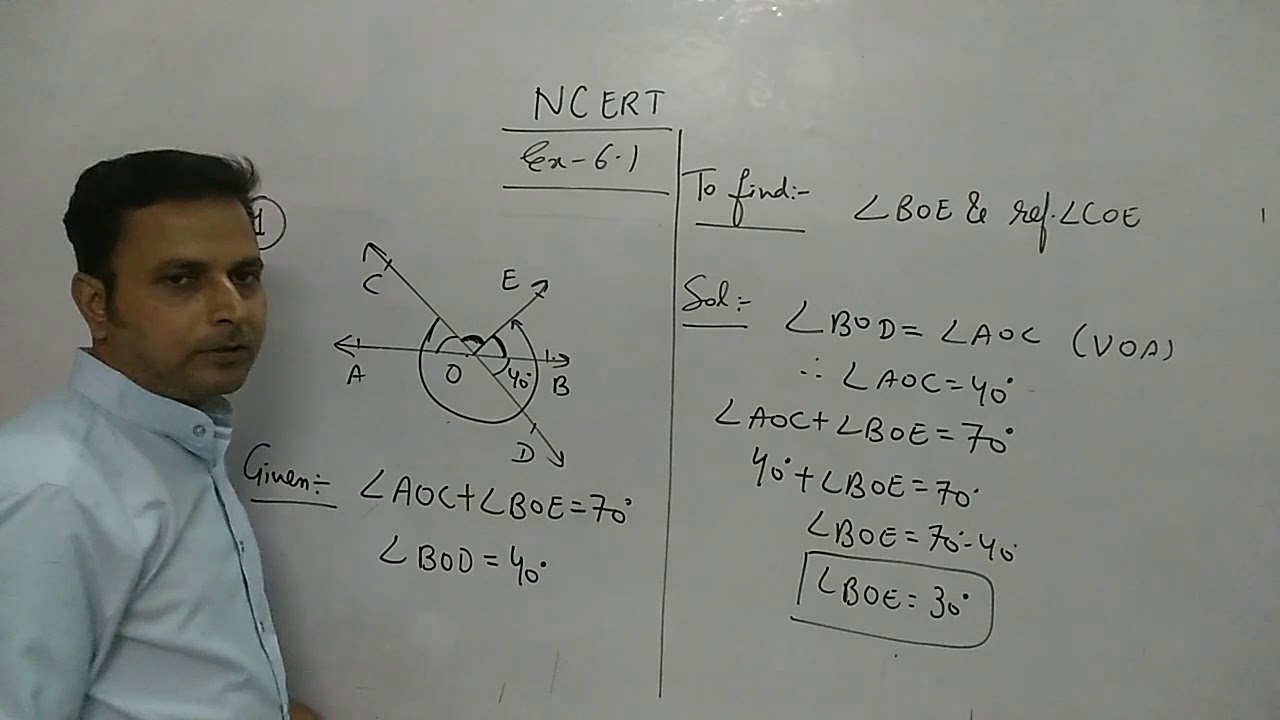 NCERT
Ex-6.1
1
C
E
A
O
40°
B
D
Given:- ∠AOC+∠BOE=70°
∠BOD=40°
To find:- ∠BOE & ref.∠COE
Sol:- ∠BOD=∠AOC (VOA)
∴ ∠AOC=40°
∠AOC+∠BOE=70°
40°+∠BOE=70°
∠BOE=70°-40°
∠BOE=30°